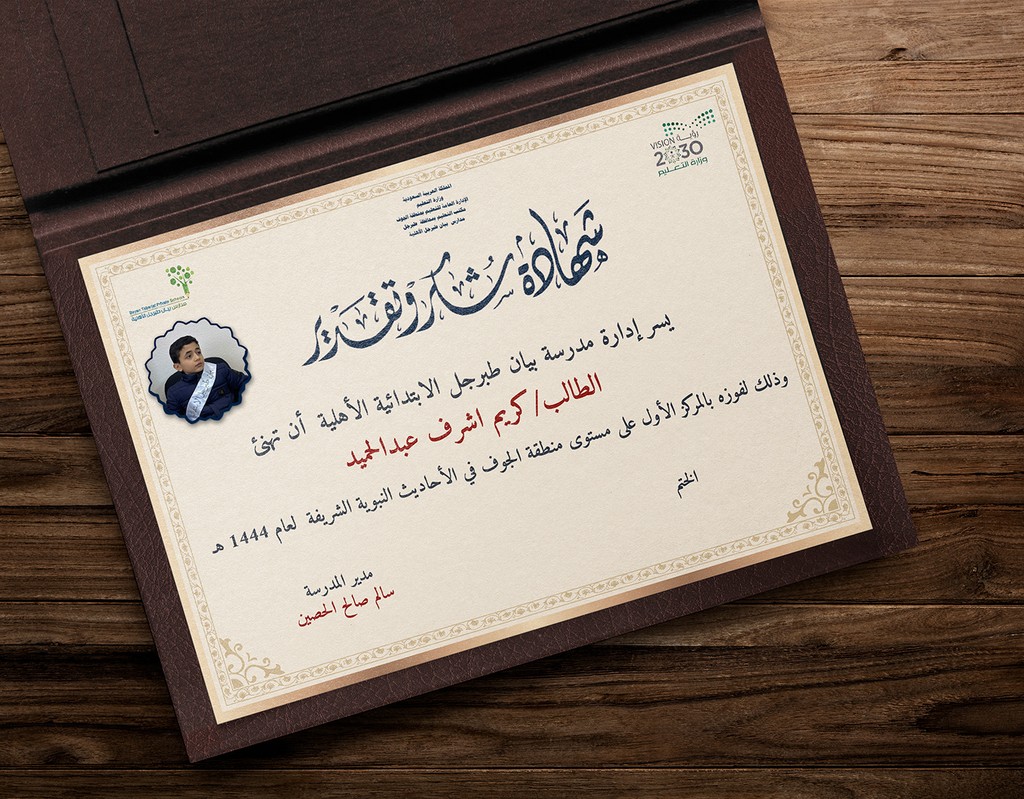 رؤيـــة
VISION
2030
وزارة التعـــليم
المملكة العربية السعودية
وزارة التعليم
الإدارة العامة للتعليم بمنطقة الجوف
مكتب التعليم بمحافظة طبرجل
مدارس بيان طبرجل الأهلية
Bayan Tabarjal Private Schools
مدارس بيان طبرجل الأهلية
شهادة شكر وتقدير
يسر إدارة مدرسة بيان طبرجل الابتدائية الأهلية أن تهنئ
الطالب/ كريم اشرف عبدالحميد
وذلك لفوزه بالمركز الأول على مستوى منطقة الجوف في الأحاديث النبوية الشريفة لعام 1444 هـ
الختم
مدير المدرسة
سالم صالح الحصين